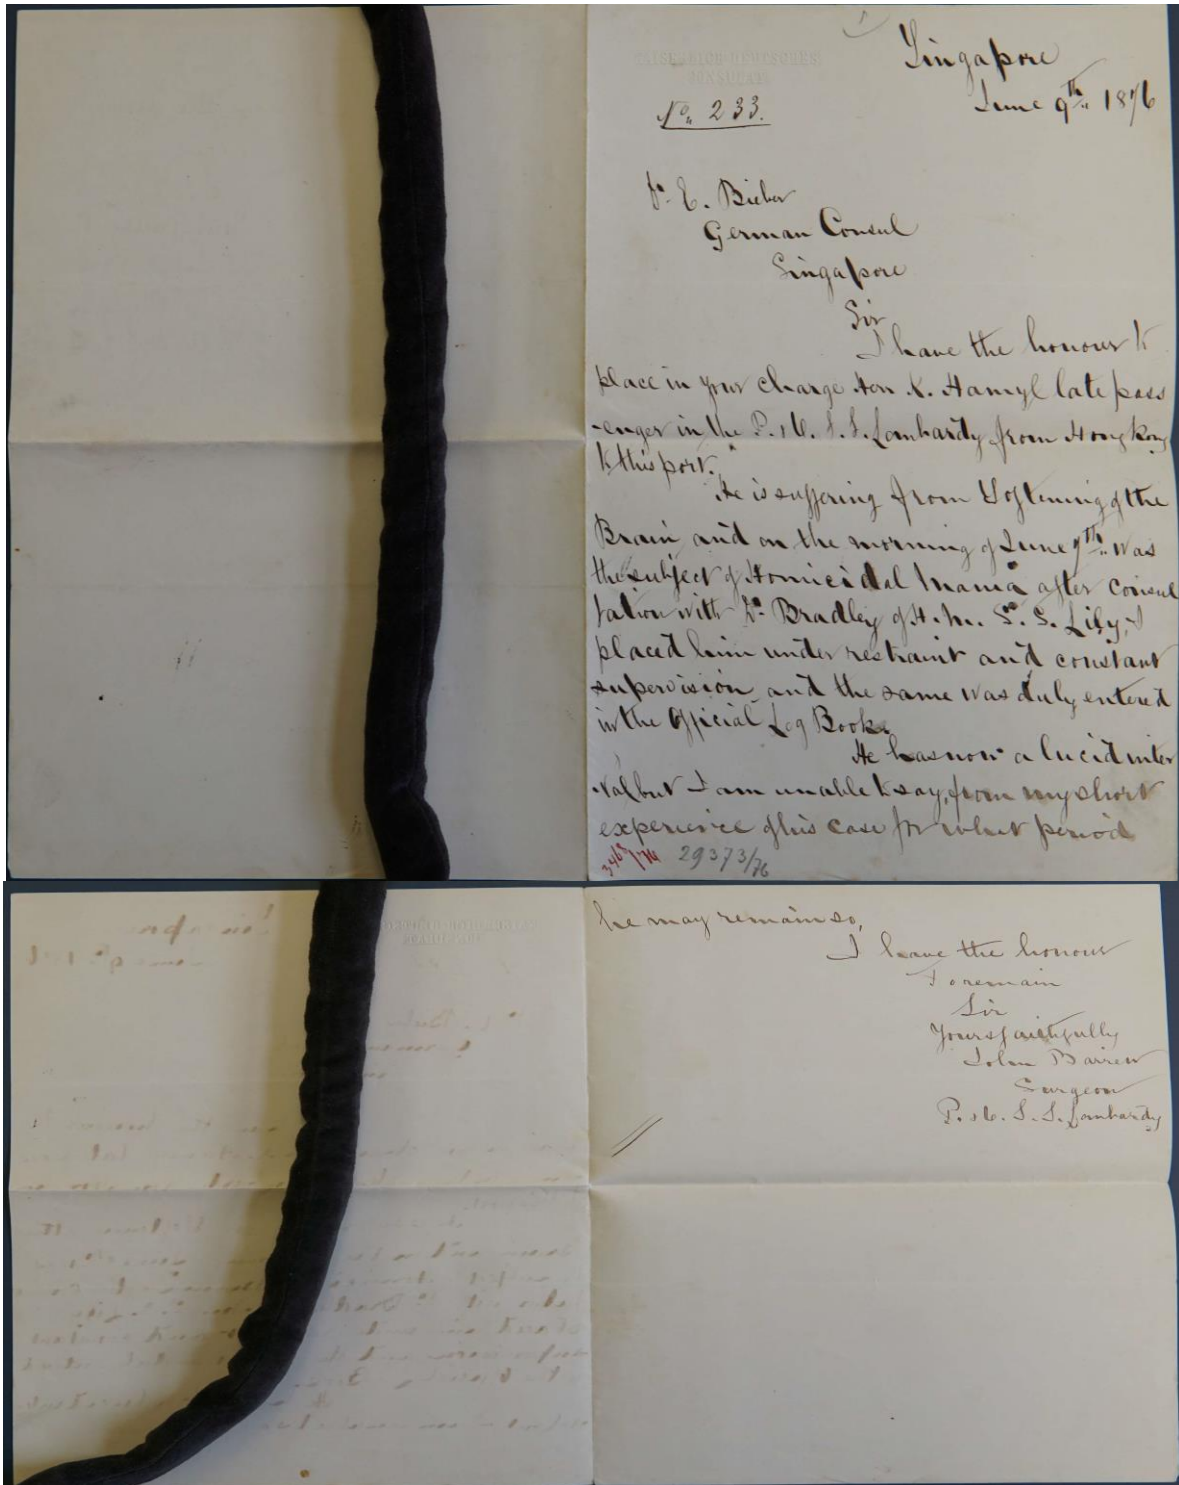 KAISERLICH DEUTSCHES
CONSULAT
Singapore
June 9th. 1876
No. 233.
Dr. E. Bieber
German Consul
Singapore
Sir
I have the honour to
place in your charge Hon K. Hamyl late pass
-enger in the P. & O. S. S. Lombardy from Hong Kong
to this port.
He is suffering from Softening of the
Brain and on the morning of June 7th. was
the subject of Homicidal Mania after consul
tation with Dr. Bradley of H. M. S. S. Lily, I
placed him under restraint and constant
supervision and the same was duly entered
in the Official Log Book.
He has now a lucid inter
-val but I am unable to say, from my short
experience of his case for what period
29373/76
he may remain so,
I have the honour
To remain
Sir
Yours faithfully
John Barrew
Surgeon
P. & O. S. S. Lombardy